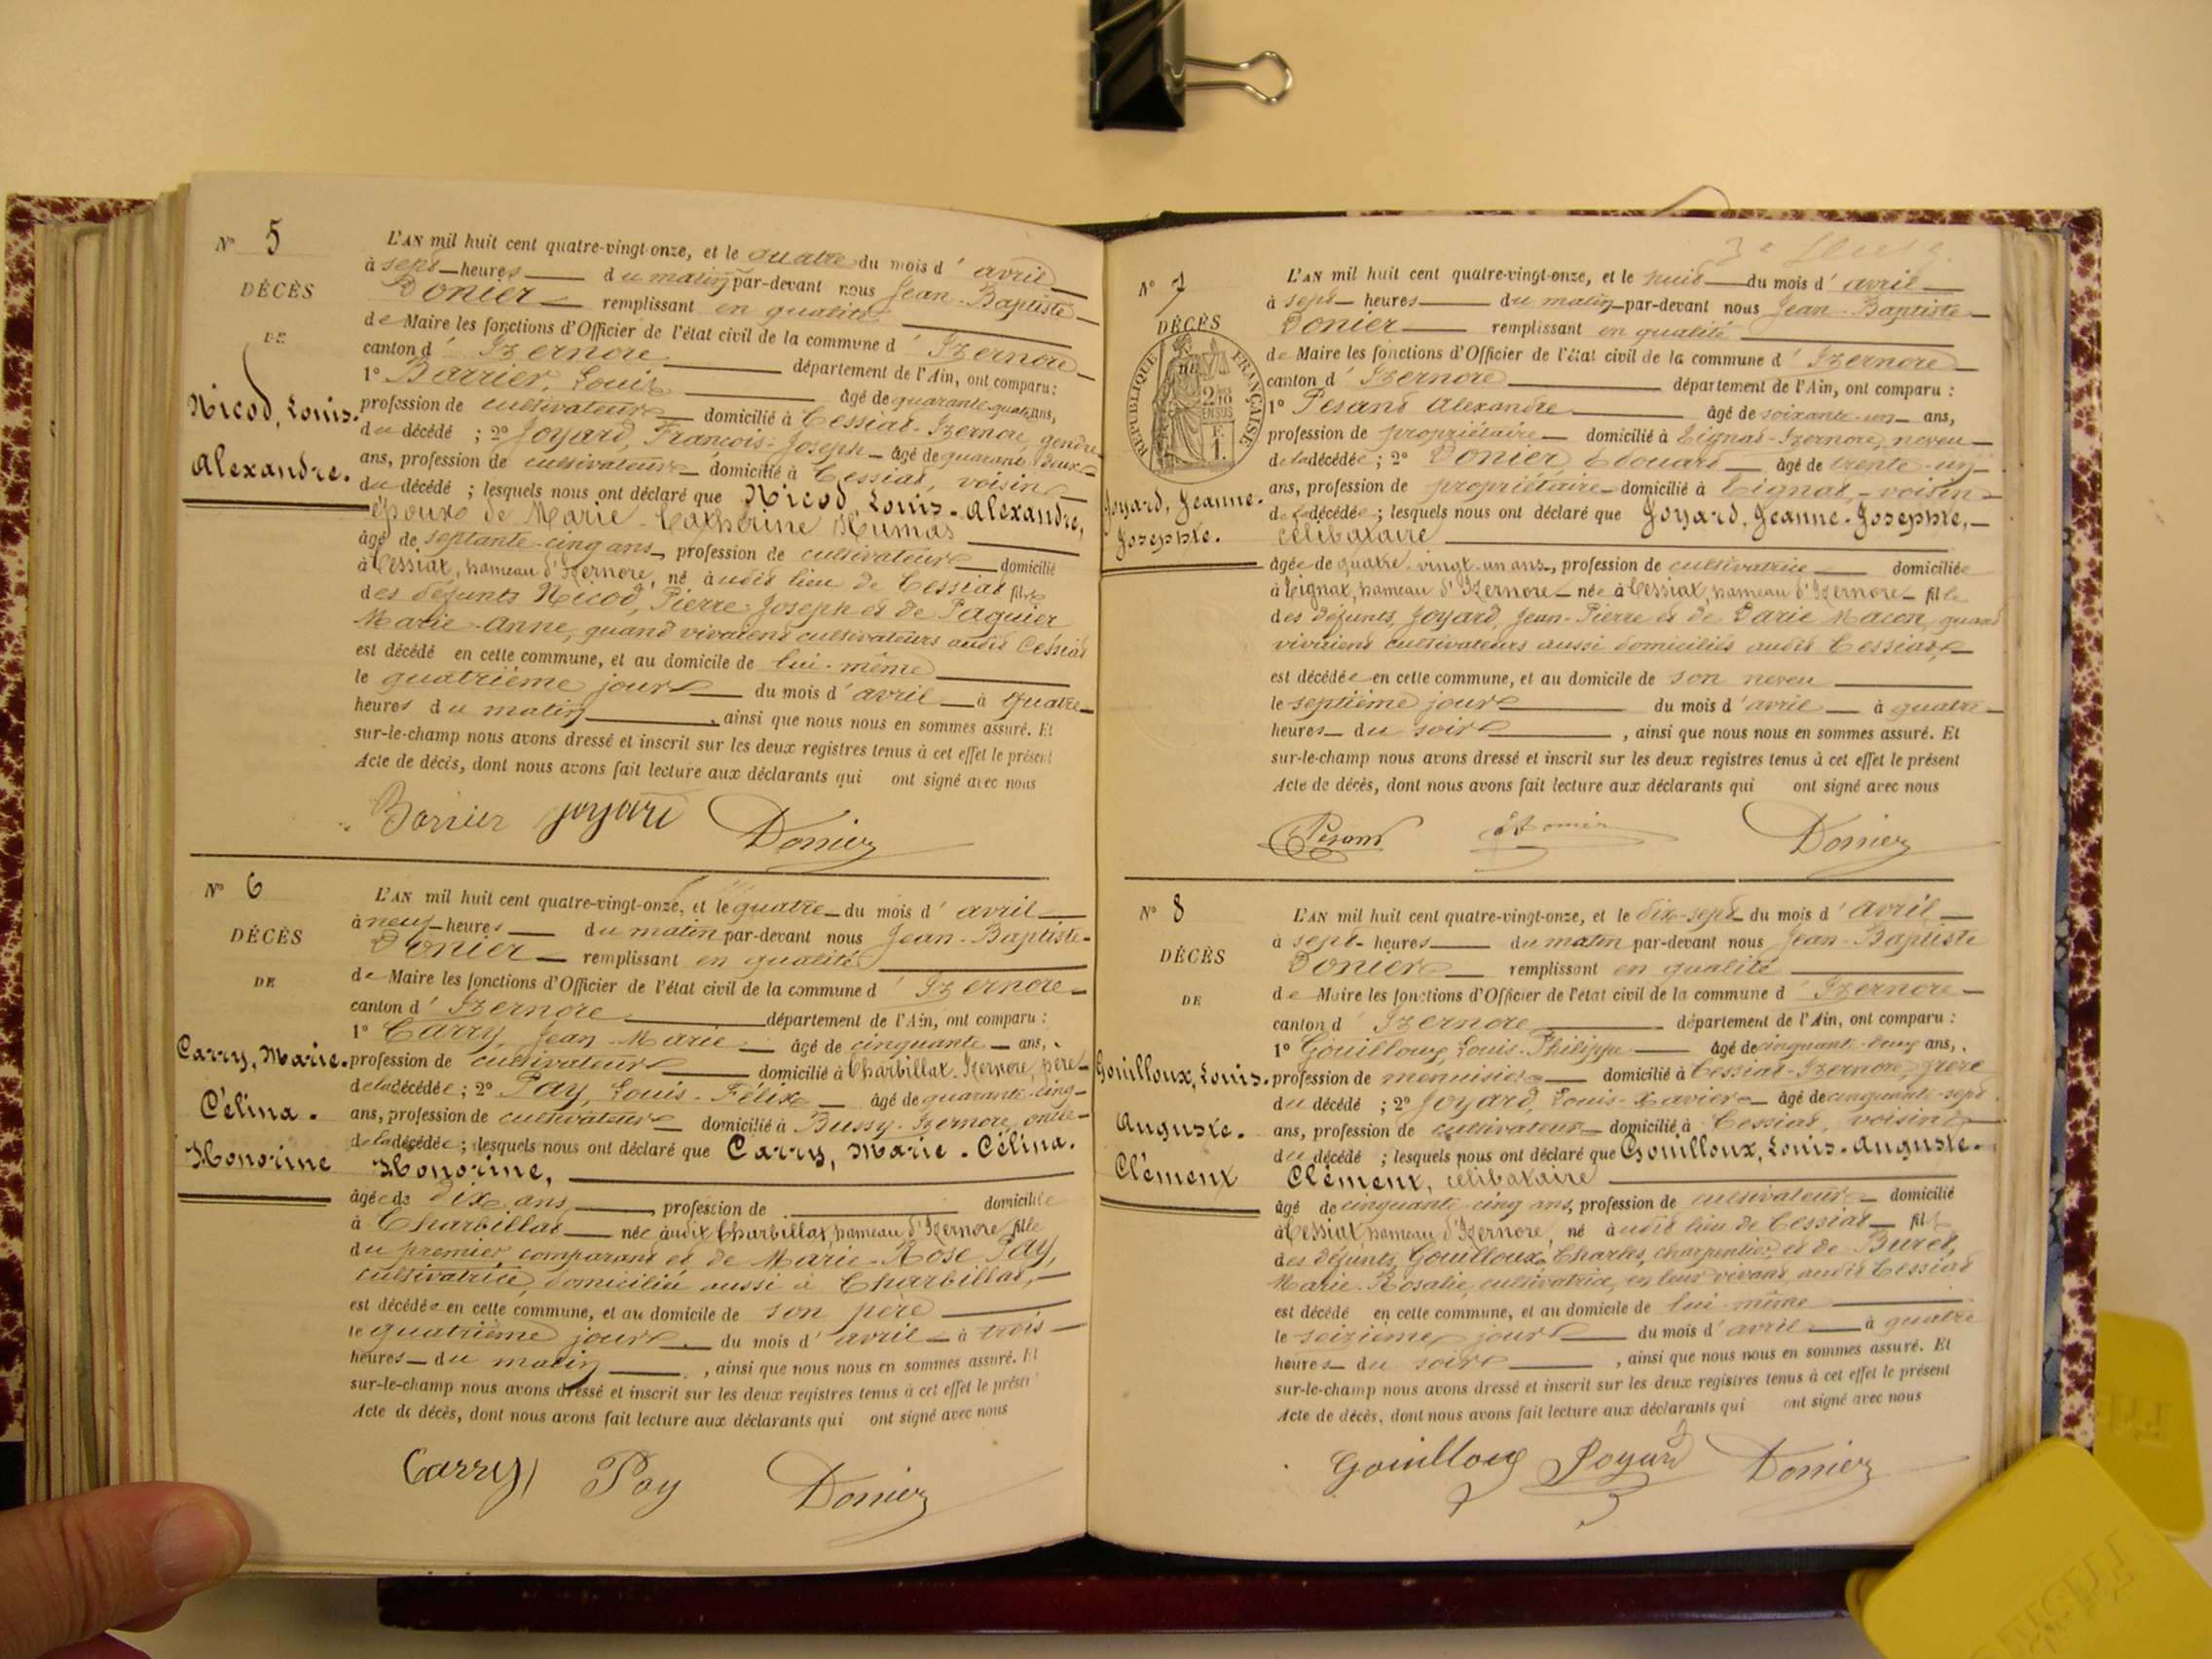 N° 5
DÉCÈS
DE
Nicod, Louis-
Alexandre.
L'AN mil huit cent quatre-vingt-onze, et le quatre du mois d'avril
à sept heures du matin par-devant nous Jean-Baptiste
Donier remplissant en qualité
de Maire les fonctions d'Officier de l'état civil de la commune d'Izernore
canton d'Izernore département de l'Ain, ont comparu :
1° Barrier, Louis âgé de quarante-quatre ans,
profession de cultivateur domicilié à Cessiat-Izernore, gendre
du décédé ; 2° Joyard, François-Joseph âgé de quarante-deux
ans, profession de cultivateur domicilié à Cessiat, voisin
du décédé ; lesquels nous ont déclaré que Nicod, Louis-Alexandre,
époux de Marie-Catherine Humas
âgé de septante-cinq ans, profession de cultivateur domicilié
à Cessiat, hameau d'Izernore, né audit lieu de Cessiat fils
des défunts Nicod, Pierre-Joseph et de Paquier
Marie-Anne, quand vivaient cultivateurs audit Cessiat
est décédé en cette commune, et au domicile de lui-même
le quatrième jour du mois d'avril à quatre
heures du matin, ainsi que nous nous en sommes assuré. Et
sur-le-champ nous avons dressé et inscrit sur les deux registres tenus à cet effet le présent
Acte de décès, dont nous avons fait lecture aux déclarants qui ont signé avec nous
Barrier Joyard Donier
N° 6
DÉCÈS
DE
Carry, Marie-
Célina-
Honorine
L'AN mil huit cent quatre-vingt-onze, et le quatre du mois d'avril
à neuf heures du matin par-devant nous Jean-Baptiste
Donier remplissant en qualité
de Maire les fonctions d'Officier de l'état civil de la commune d'Izernore
canton d'Izernore département de l'Ain, ont comparu :
1° Carry, Jean-Marie âgé de cinquante ans,
profession de cultivateur domicilié à Charbillat-Izernore, père
de la décédée ; 2° Pay, Louis-Félix âgé de quarante-cinq
ans, profession de cultivateur domicilié à Bussy-Izernore, oncle
de la décédée ; lesquels nous ont déclaré que Carry, Marie-Célina-
Honorine,
âgée de dix ans, profession de domiciliée
à Charbillat née audit Charbillat, hameau d'Izernore fille
du premier comparant et de Marie-Rose Pay,
cultivatrice, domiciliée aussi à Charbillat,
est décédée en cette commune, et au domicile de son père
le quatrième jour du mois d'avril à trois
heures du matin, ainsi que nous nous en sommes assuré. Et
sur-le-champ nous avons dressé et inscrit sur les deux registres tenus à cet effet le présent
Acte de décès, dont nous avons fait lecture aux déclarants qui ont signé avec nous
Carry Pay Donier
N° 7
DÉCÈS
DE
RÉPUBLIQUE FRANÇAISE
2/10 EN SUS
1 F.
Joyard, Jeanne-
Josephte.
L'AN mil huit cent quatre-vingt-onze, et le huit du mois d'avril
à sept heures du matin par-devant nous Jean-Baptiste
Donier remplissant en qualité
de Maire les fonctions d'Officier de l'état civil de la commune d'Izernore
canton d'Izernore département de l'Ain, ont comparu :
1° Pesand Alexandre âgé de soixante-un ans,
profession de propriétaire domicilié à Tignat-Izernore, neveu
de la décédée ; 2° Donier, Edouard âgé de trente-un
ans, profession de propriétaire domicilié à Tignat, voisin
de la décédée ; lesquels nous ont déclaré que Joyard, Jeanne-Josephte,
célibataire
âgée de quatre-vingt-un ans, profession de cultivatrice domiciliée
à Tignat, hameau d'Izernore née à Cessiat, hameau d'Izernore fille
des défunts, Joyard, Jean-Pierre et de Darie Macon, quand
vivaient cultivateurs aussi domiciliés audit Cessiat,
est décédée en cette commune, et au domicile de son neveu
le septième jour du mois d'avril à quatre
heures du soir, ainsi que nous nous en sommes assuré. Et
sur-le-champ nous avons dressé et inscrit sur les deux registres tenus à cet effet le présent
Acte de décès, dont nous avons fait lecture aux déclarants qui ont signé avec nous
Pesand Donier
N° 8
DÉCÈS
DE
Gouilloux, Louis-
Auguste-
Clément
L'AN mil huit cent quatre-vingt-onze, et le dix-sept du mois d'avril
à sept heures du matin par-devant nous Jean-Baptiste
Donier remplissant en qualité
de Maire les fonctions d'Officier de l'état civil de la commune d'Izernore
canton d'Izernore département de l'Ain, ont comparu :
1° Gouilloux, Louis-Philippe âgé de cinquante-deux ans,
profession de menuisier domicilié à Cessiat-Izernore, frère
du décédé ; 2° Joyard, Louis-Xavier âgé de cinquante-sept
ans, profession de cultivateur domicilié à Cessiat, voisin
du décédé ; lesquels nous ont déclaré que Gouilloux, Louis-Auguste-
Clément, célibataire
âgé de cinquante-cinq ans, profession de cultivateur domicilié
à Cessiat hameau d'Izernore, né audit lieu de Cessiat fils
des défunts, Gouilloux, Charles, charpentier et de Buret,
Marie-Rosalie, cultivatrice, en leur vivant audit Cessiat
est décédé en cette commune, et au domicile de lui-même
le seizième jour du mois d'avril à quatre
heures du soir, ainsi que nous nous en sommes assuré. Et
sur-le-champ nous avons dressé et inscrit sur les deux registres tenus à cet effet le présent
Acte de décès, dont nous avons fait lecture aux déclarants qui ont signé avec nous
Gouilloux Joyard Donier